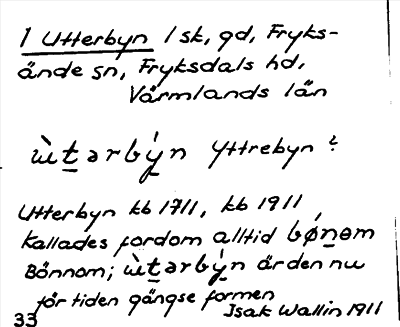 1 Utterbyn 1 sk, gd, Fryks-
ände sn, Fryksdals hd,
Värmlands län
ùt̲ərbý̲n Yttrebyn ?
Utterbyn kb 1711, kb 1911
Kallades fordom alltid bǿn̲əm
Bönnom; ùt̲ərbý̲n är den nu
för tiden gängse formen
33 Isak Wallin 1911